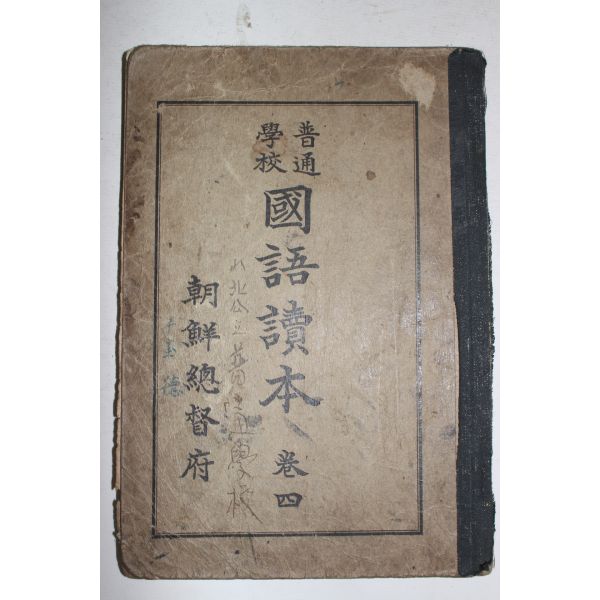 普通
學校
國語讀本 卷四
北公立普通學校
朝鮮總督府